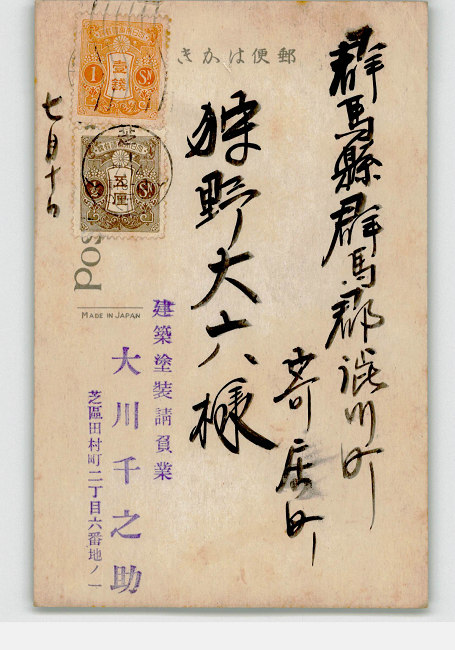 郵便はかき
群馬縣群馬郡澁川町
寄居町
狩野大六様
七月十日
1 壹錢 Sn
½ 五厘 Sn
芝
Pos
MADE IN JAPAN
建築塗装請負業
大川千之助
芝區田村町二丁目六番地ノ一